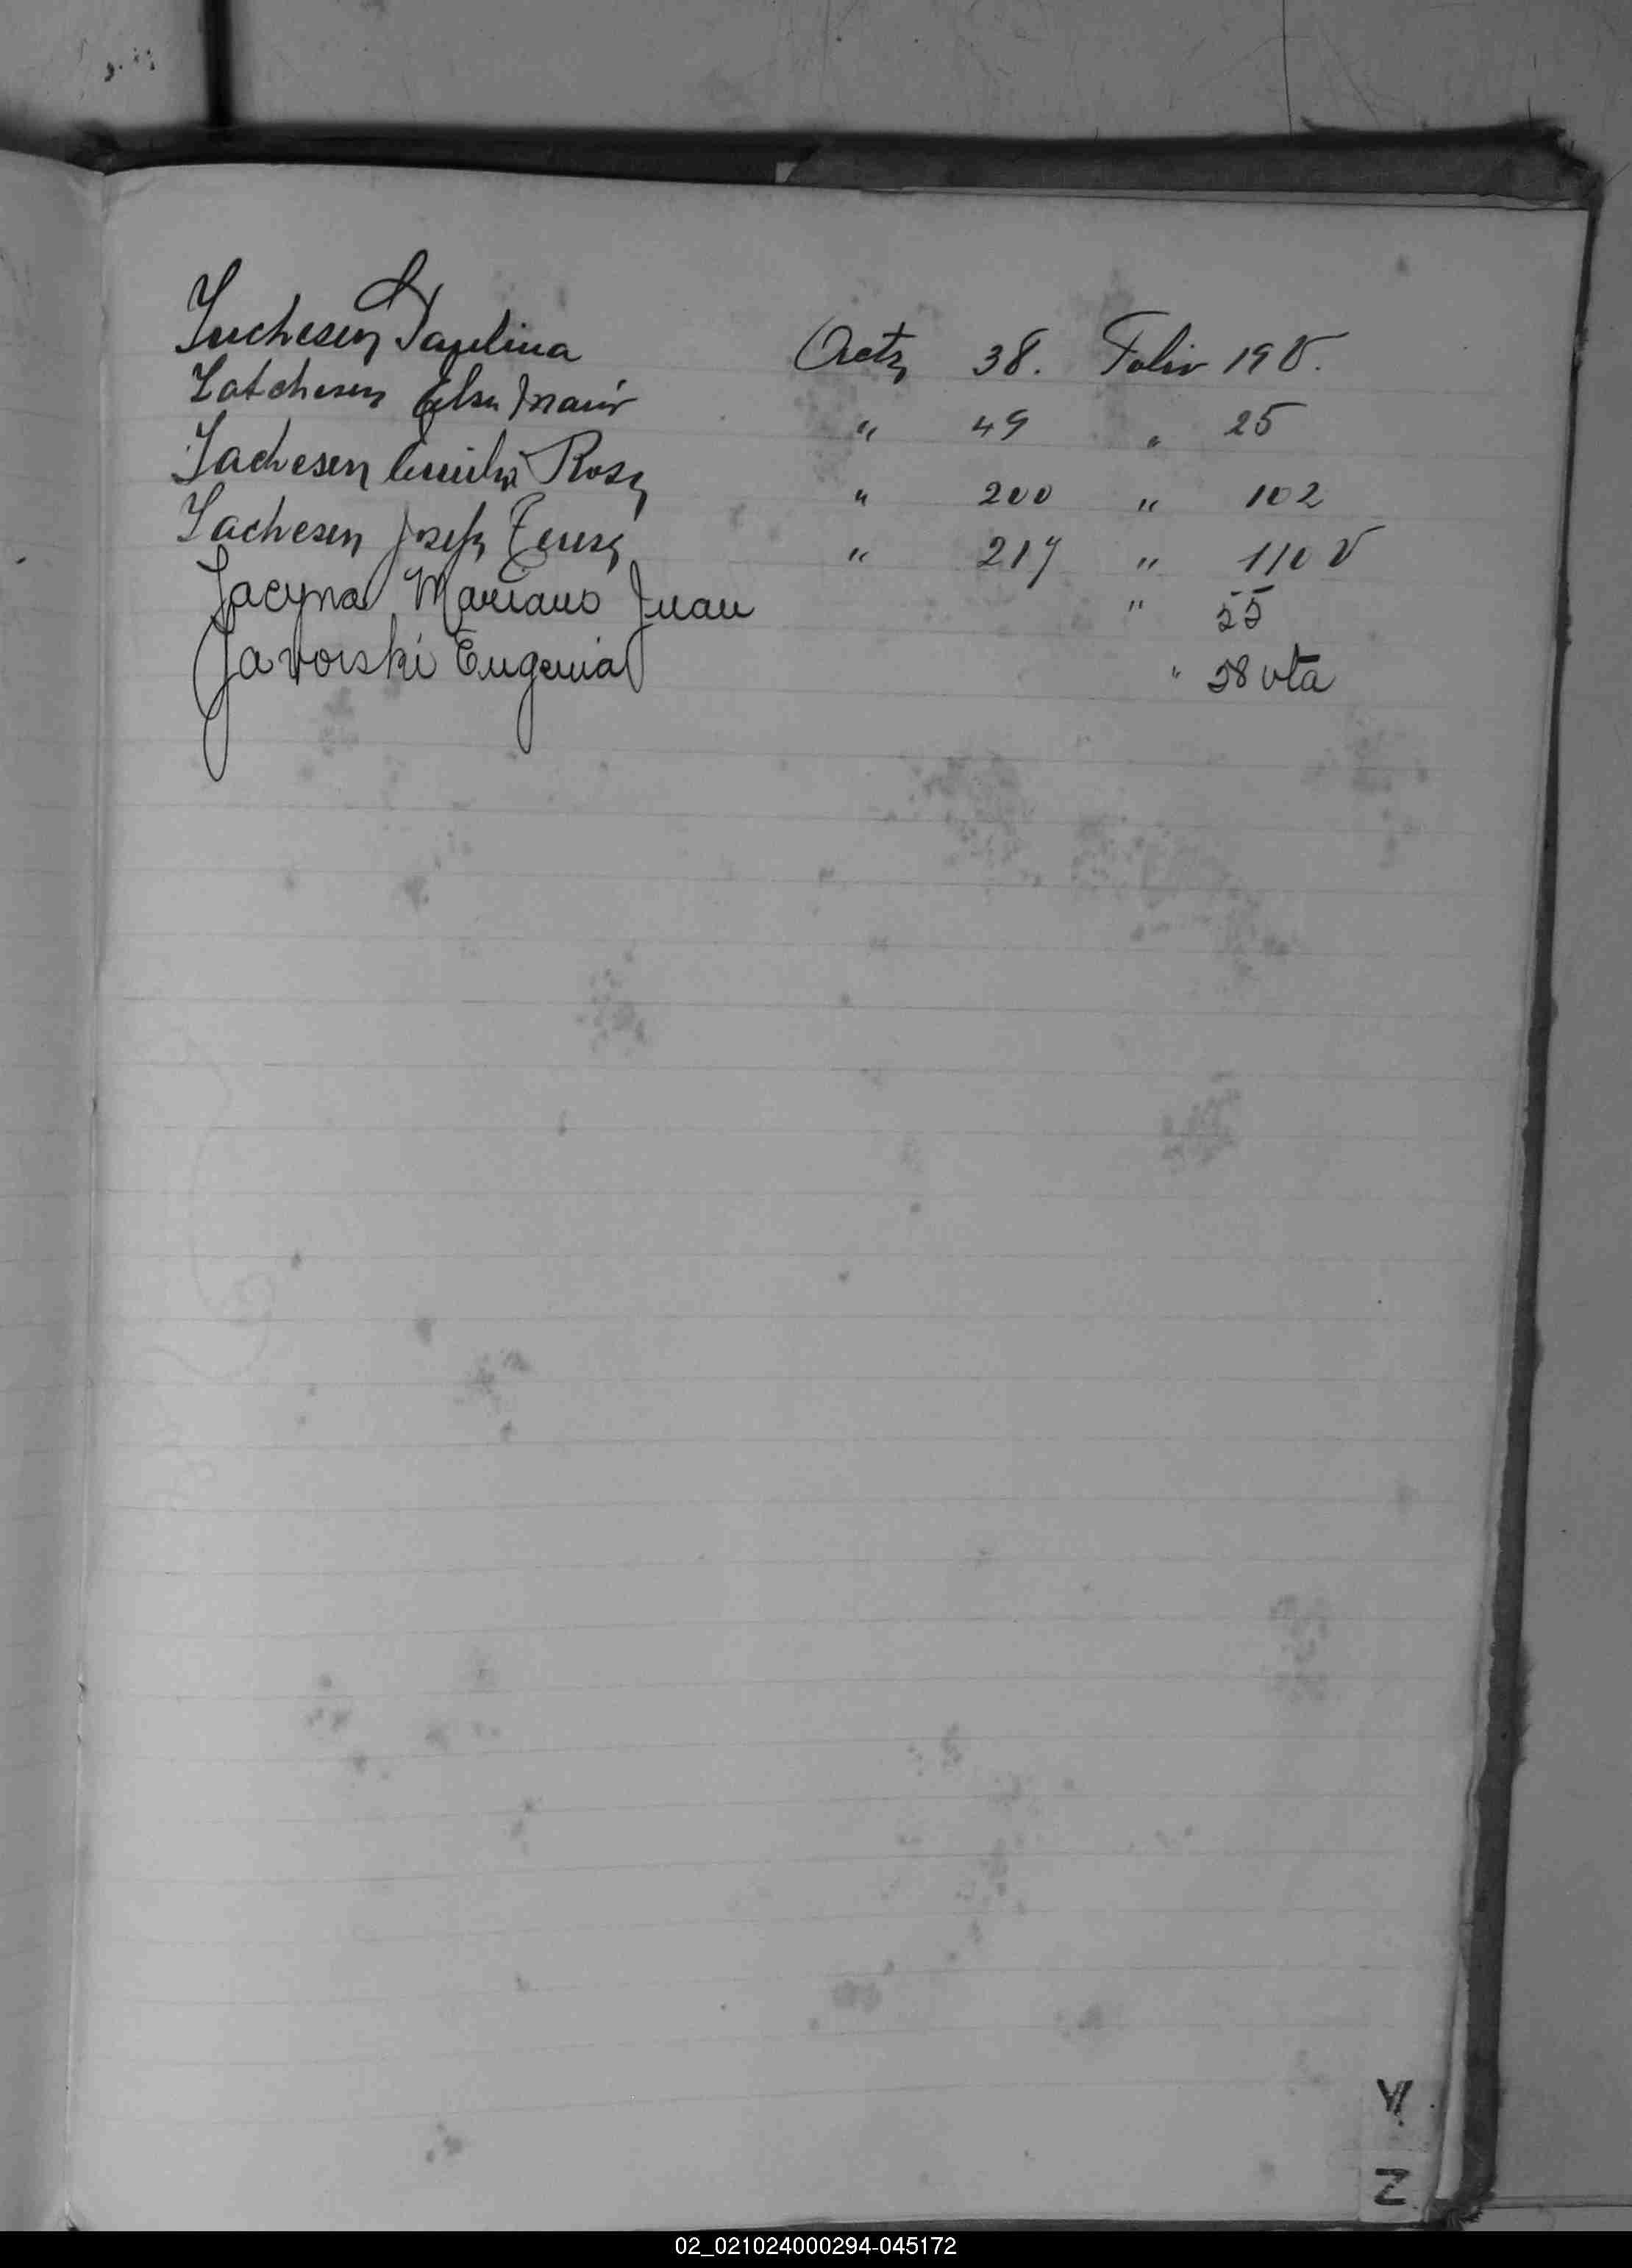 Paulina Acta 38. Folio 19 V.
Elsa María " 49 " 25
Emilia Rosa " 200 " 102
Josefa Teresa " 217 " 110 V
Jacyna Mariano Juan " 55
Javorski Eugenia " 58 vta
Y
Z
02_021024000294-045172